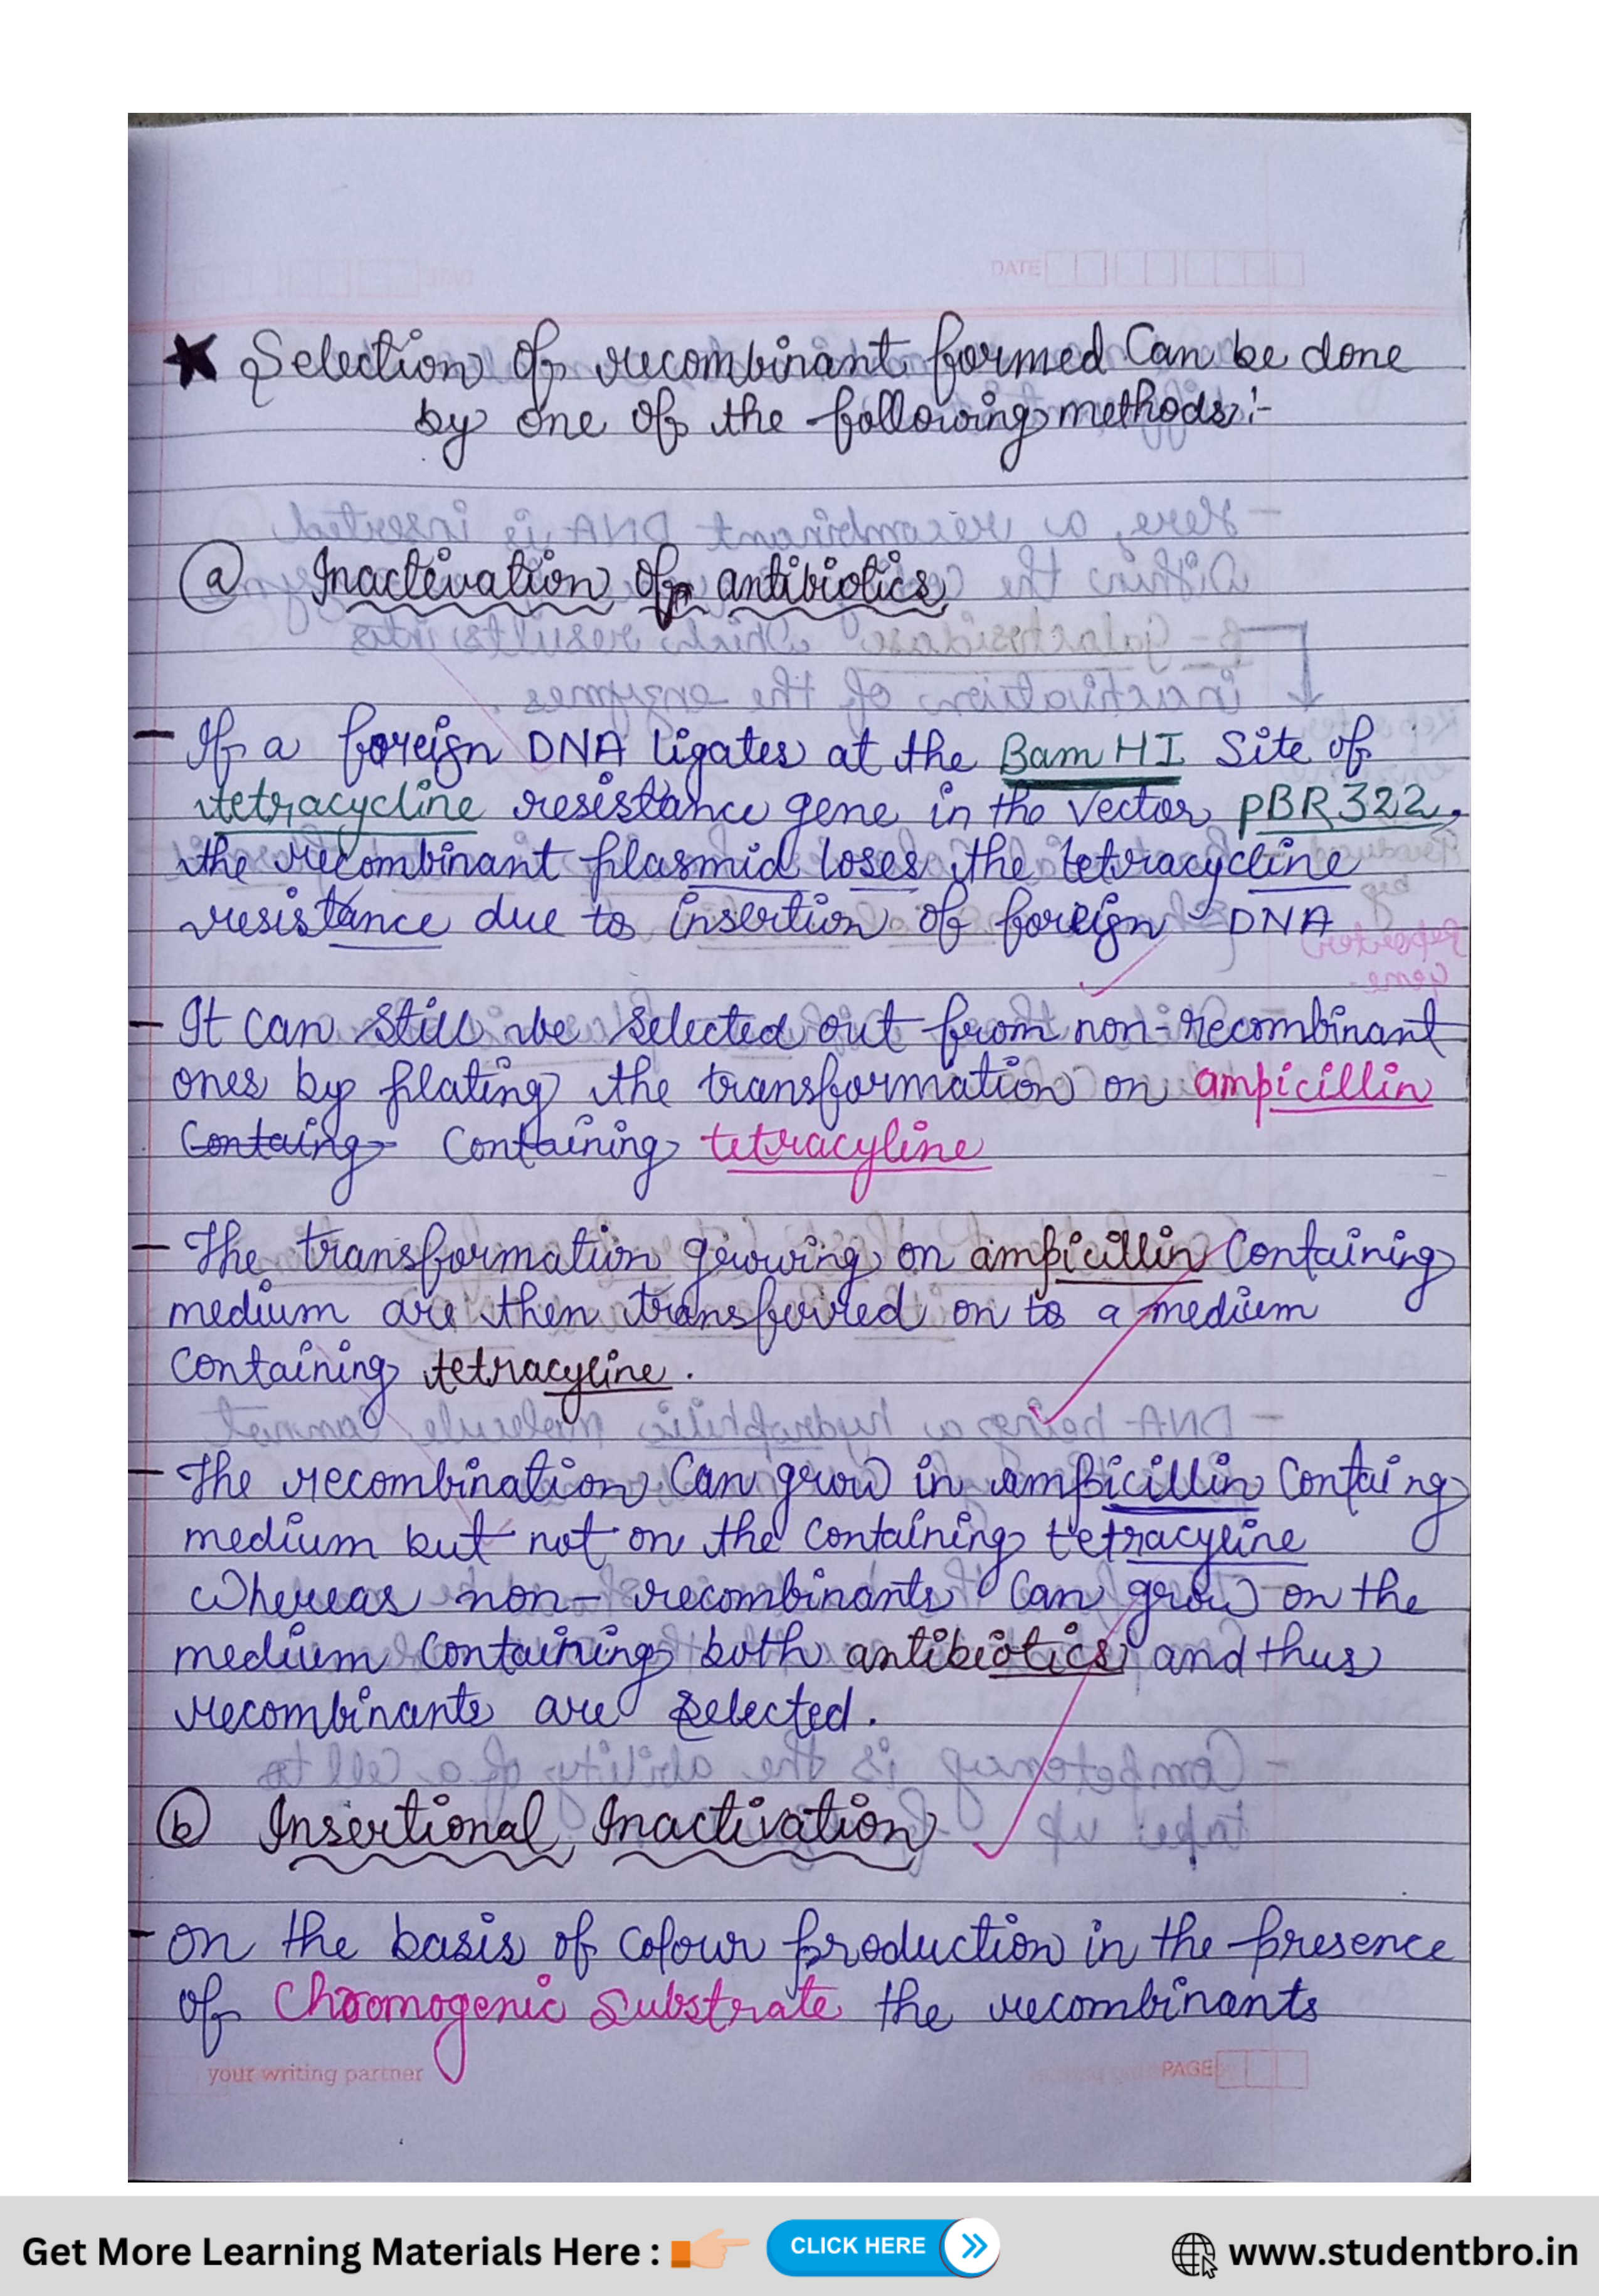 DATE
★ Selection of recombinant formed Can be done
by one of the following methods:-
(a) Inactivation of antibiotics
- If a foreign DNA ligates at the Bam HI Site of
tetracycline resistance gene in the vector pBR322,
the recombinant plasmid loses the tetracycline
resistance due to insertion of foreign DNA
- It can still be selected out from non-recombinant
ones by plating the transformation on ampicillin
Containg Containing tetracyline
- The transformation growing on ampicillin Containing
medium are then transferred on to a medium
containing tetracyline.
- The recombination Can grow in ampicillin Containg
medium but not on the containing tetracyline
Whereas non-recombinants Can grow on the
medium containing both antibiotics and thus
recombinants are selected.
(b) Insertional Inactivation
- on the basis of colour production in the presence
of Chromogenic Substrate the recombinants
your writing partner
PAGE
Get More Learning Materials Here :
CLICK HERE
www.studentbro.in